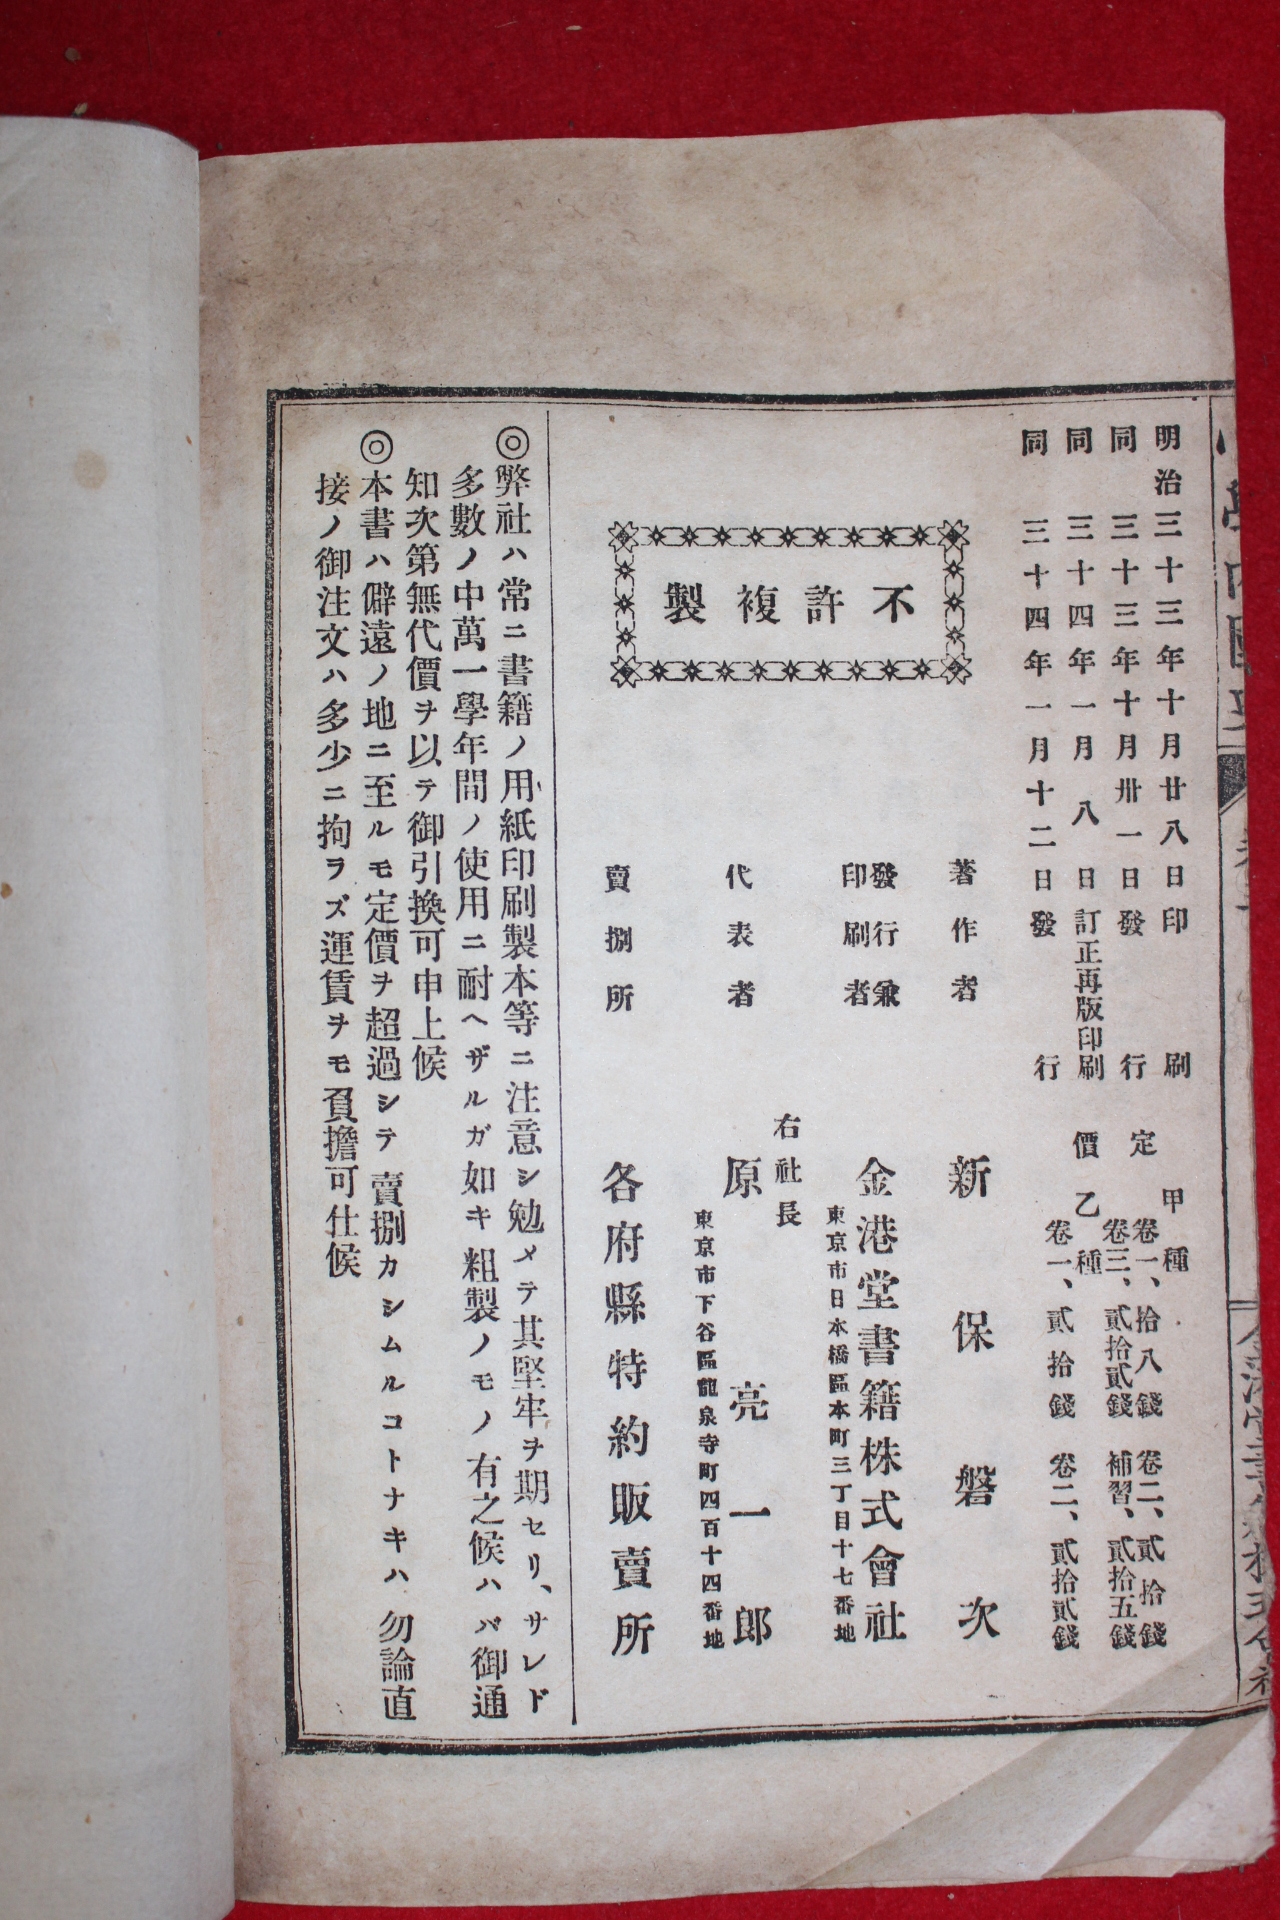 明治三十三年十月廿八日印刷
同三十三年十月卅一日發行
同三十四年一月八日訂正再版印刷
同三十四年一月十二日發行
定價
甲種
卷一、拾八錢　卷二、貳拾錢
卷三、貳拾貳錢　補習、貳拾五錢
乙種
卷一、貳拾錢　卷二、貳拾貳錢
不許複製
著作者　新保磐次
發行兼印刷者　金港堂書籍株式會社
東京市日本橋區本町三丁目十七番地
右社長
代表者　原亮一郎
東京市下谷區龍泉寺町四百十四番地
賣捌所　各府縣特約販賣所
◎弊社ハ常ニ書籍ノ用紙印刷製本等ニ注意シ勉メテ其堅牢ヲ期セリ、サレド
多數ノ中萬一學年間ノ使用ニ耐ヘザルガ如キ粗製ノモノ有之候ハヾ御通
知次第無代價ヲ以テ御引換可申上候
◎本書ハ僻遠ノ地ニ至ルモ定價ヲ超過シテ賣捌カシムルコトナキハ勿論直
接ノ御注文ハ多少ニ拘ラズ運賃ヲモ負擔可仕候